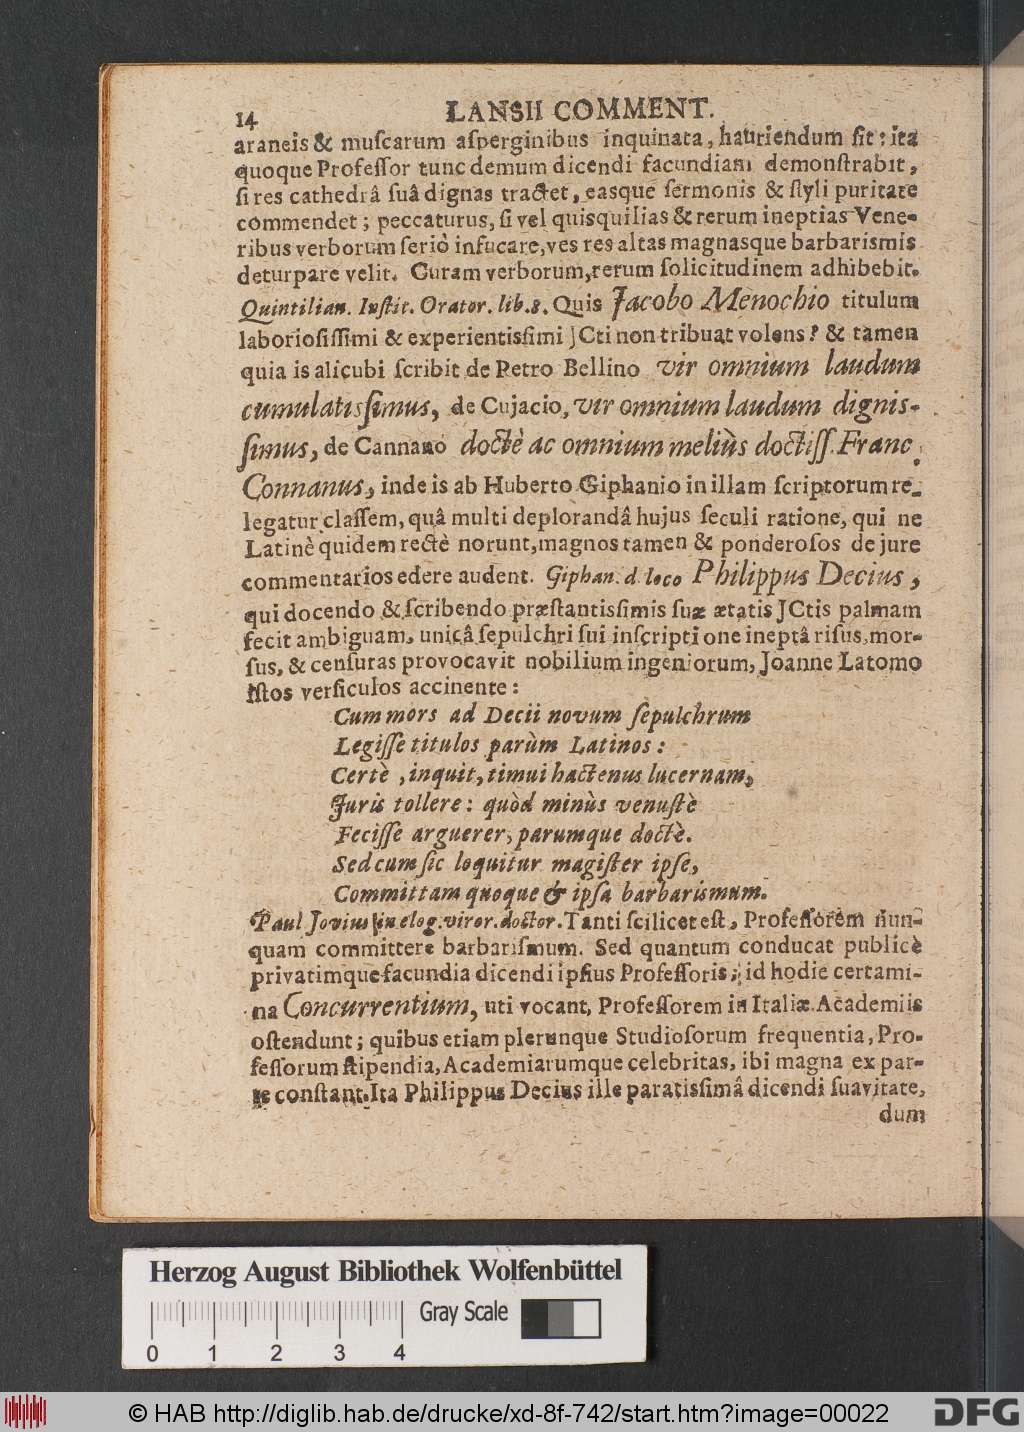 14
LANSII COMMENT.
araneis & muſcarum aſperginibus inquinata, hauriendum ſit: ita
quoque Profeſſor tunc demum dicendi facundiam demonſtrabit,
ſi res cathedrâ ſuâ dignas tractet, easque ſermonis & ſtyli puritate
commendet; peccaturus, ſi vel quisquilias & rerum ineptias Vene-
ribus verborum ſeriò infucare, ves res altas magnasque barbarismis
deturpare velit. Curam verborum, rerum ſolicitudinem adhibebit.
Quintilian. Inſtit. Orator. lib. 8. Quis Jacobo Menochio titulum
laborioſiſſimi & experientissimi JCti non tribuat volens? & tamen
quia is alicubi ſcribit de Petro Bellino vir omnium laudum
cumulatisſimus, de Cujacio, vir omnium laudum dignis-
ſimus, de Cannano doctè ac omnium meliùs doctiſſ. Franc.
Connanus, inde is ab Huberto Giphanio in illam ſcriptorum re-
legatur claſſem, quâ multi deplorandâ hujus ſeculi ratione, qui ne
Latinè quidem rectè norunt, magnos tamen & ponderoſos de jure
commentarios edere audent. Giphan. d. loco Philippus Decius,
qui docendo & ſcribendo præſtantisſimis ſuæ ætatis JCtis palmam
fecit ambiguam, unicâ ſepulchri ſui inſcriptione ineptâ riſus, mor-
ſus, & cenſuras provocavit nobilium ingeniorum, Joanne Latomo
iſtos verſiculos accinente:
Cum mors ad Decii novum ſepulchrum
Legiſſe titulos parùm Latinos:
Certè, inquit, timui hactenus lucernam,
Juris tollere: quòd minùs venuſtè
Feciſſe arguerer, parumque doctè.
Sed cum ſic loquitur magiſter ipſe,
Committam quoque & ipſa barbarismum.
Paul Jovius in elog. viror. doctor. Tanti ſcilicet eſt, Profeſſorem nun-
quam committere barbariſmum. Sed quantum conducat publicè
privatimque facundia dicendi ipſius Profeſſoris; id hodie certami-
na Concurrentium, uti vocant, Profeſſorem in Italiæ Academiis
oſtendunt; quibus etiam plerunque Studioſorum frequentia, Pro-
feſſorum ſtipendia, Academiarumque celebritas, ibi magna ex par-
te conſtant. Ita Philippus Decius ille paratisſimâ dicendi ſuavitate,
dum
Herzog August Bibliothek Wolfenbüttel
Gray Scale
0 1 2 3 4
© HAB http://diglib.hab.de/drucke/xd-8f-742/start.htm?image=00022
DFG